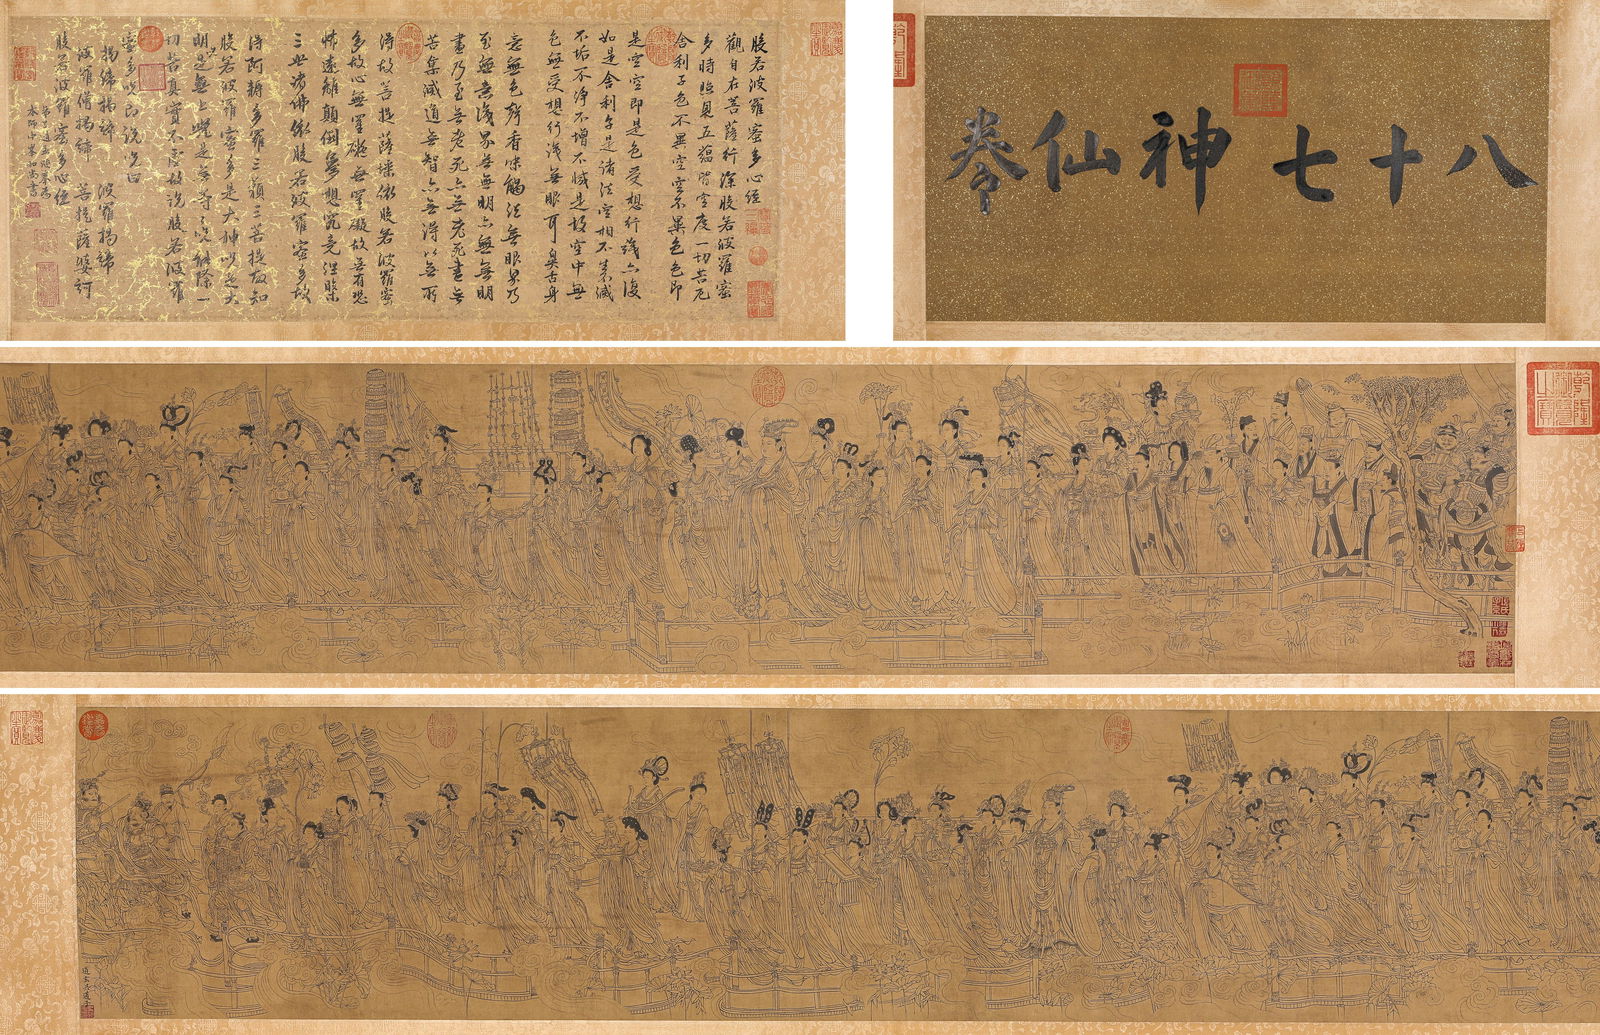 八十七神仙卷
般若波羅蜜多心經
觀自在菩薩行深般若波羅蜜
多時照見五蘊皆空度一切苦厄
舍利子色不異空空不異色色即
是空空即是色受想行識亦復
如是舍利子是諸法空相不生滅
不垢不淨不增不減是故空中無
色無受想行識無眼耳鼻舌身
意無色聲香味觸法無眼界乃
至無意識界無無明亦無無明
盡乃至無老死亦無老死盡無
苦集滅道無智亦無得以無所
得故菩提薩埵依般若波羅蜜
多故心無罣礙無罣礙故無有恐
怖遠離顛倒夢想究竟涅槃
三世諸佛依般若波羅蜜多故
得阿耨多羅三藐三菩提故知
般若波羅蜜多是大神咒是大
明咒是無上咒是無等等咒能除一
切苦真實不虛故說般若波羅
蜜多咒即說咒曰
揭諦揭諦 波羅揭諦
波羅僧揭諦 菩提薩婆訶
般若波羅蜜多心經
本師中峯和尚書
乾隆御覽之寶